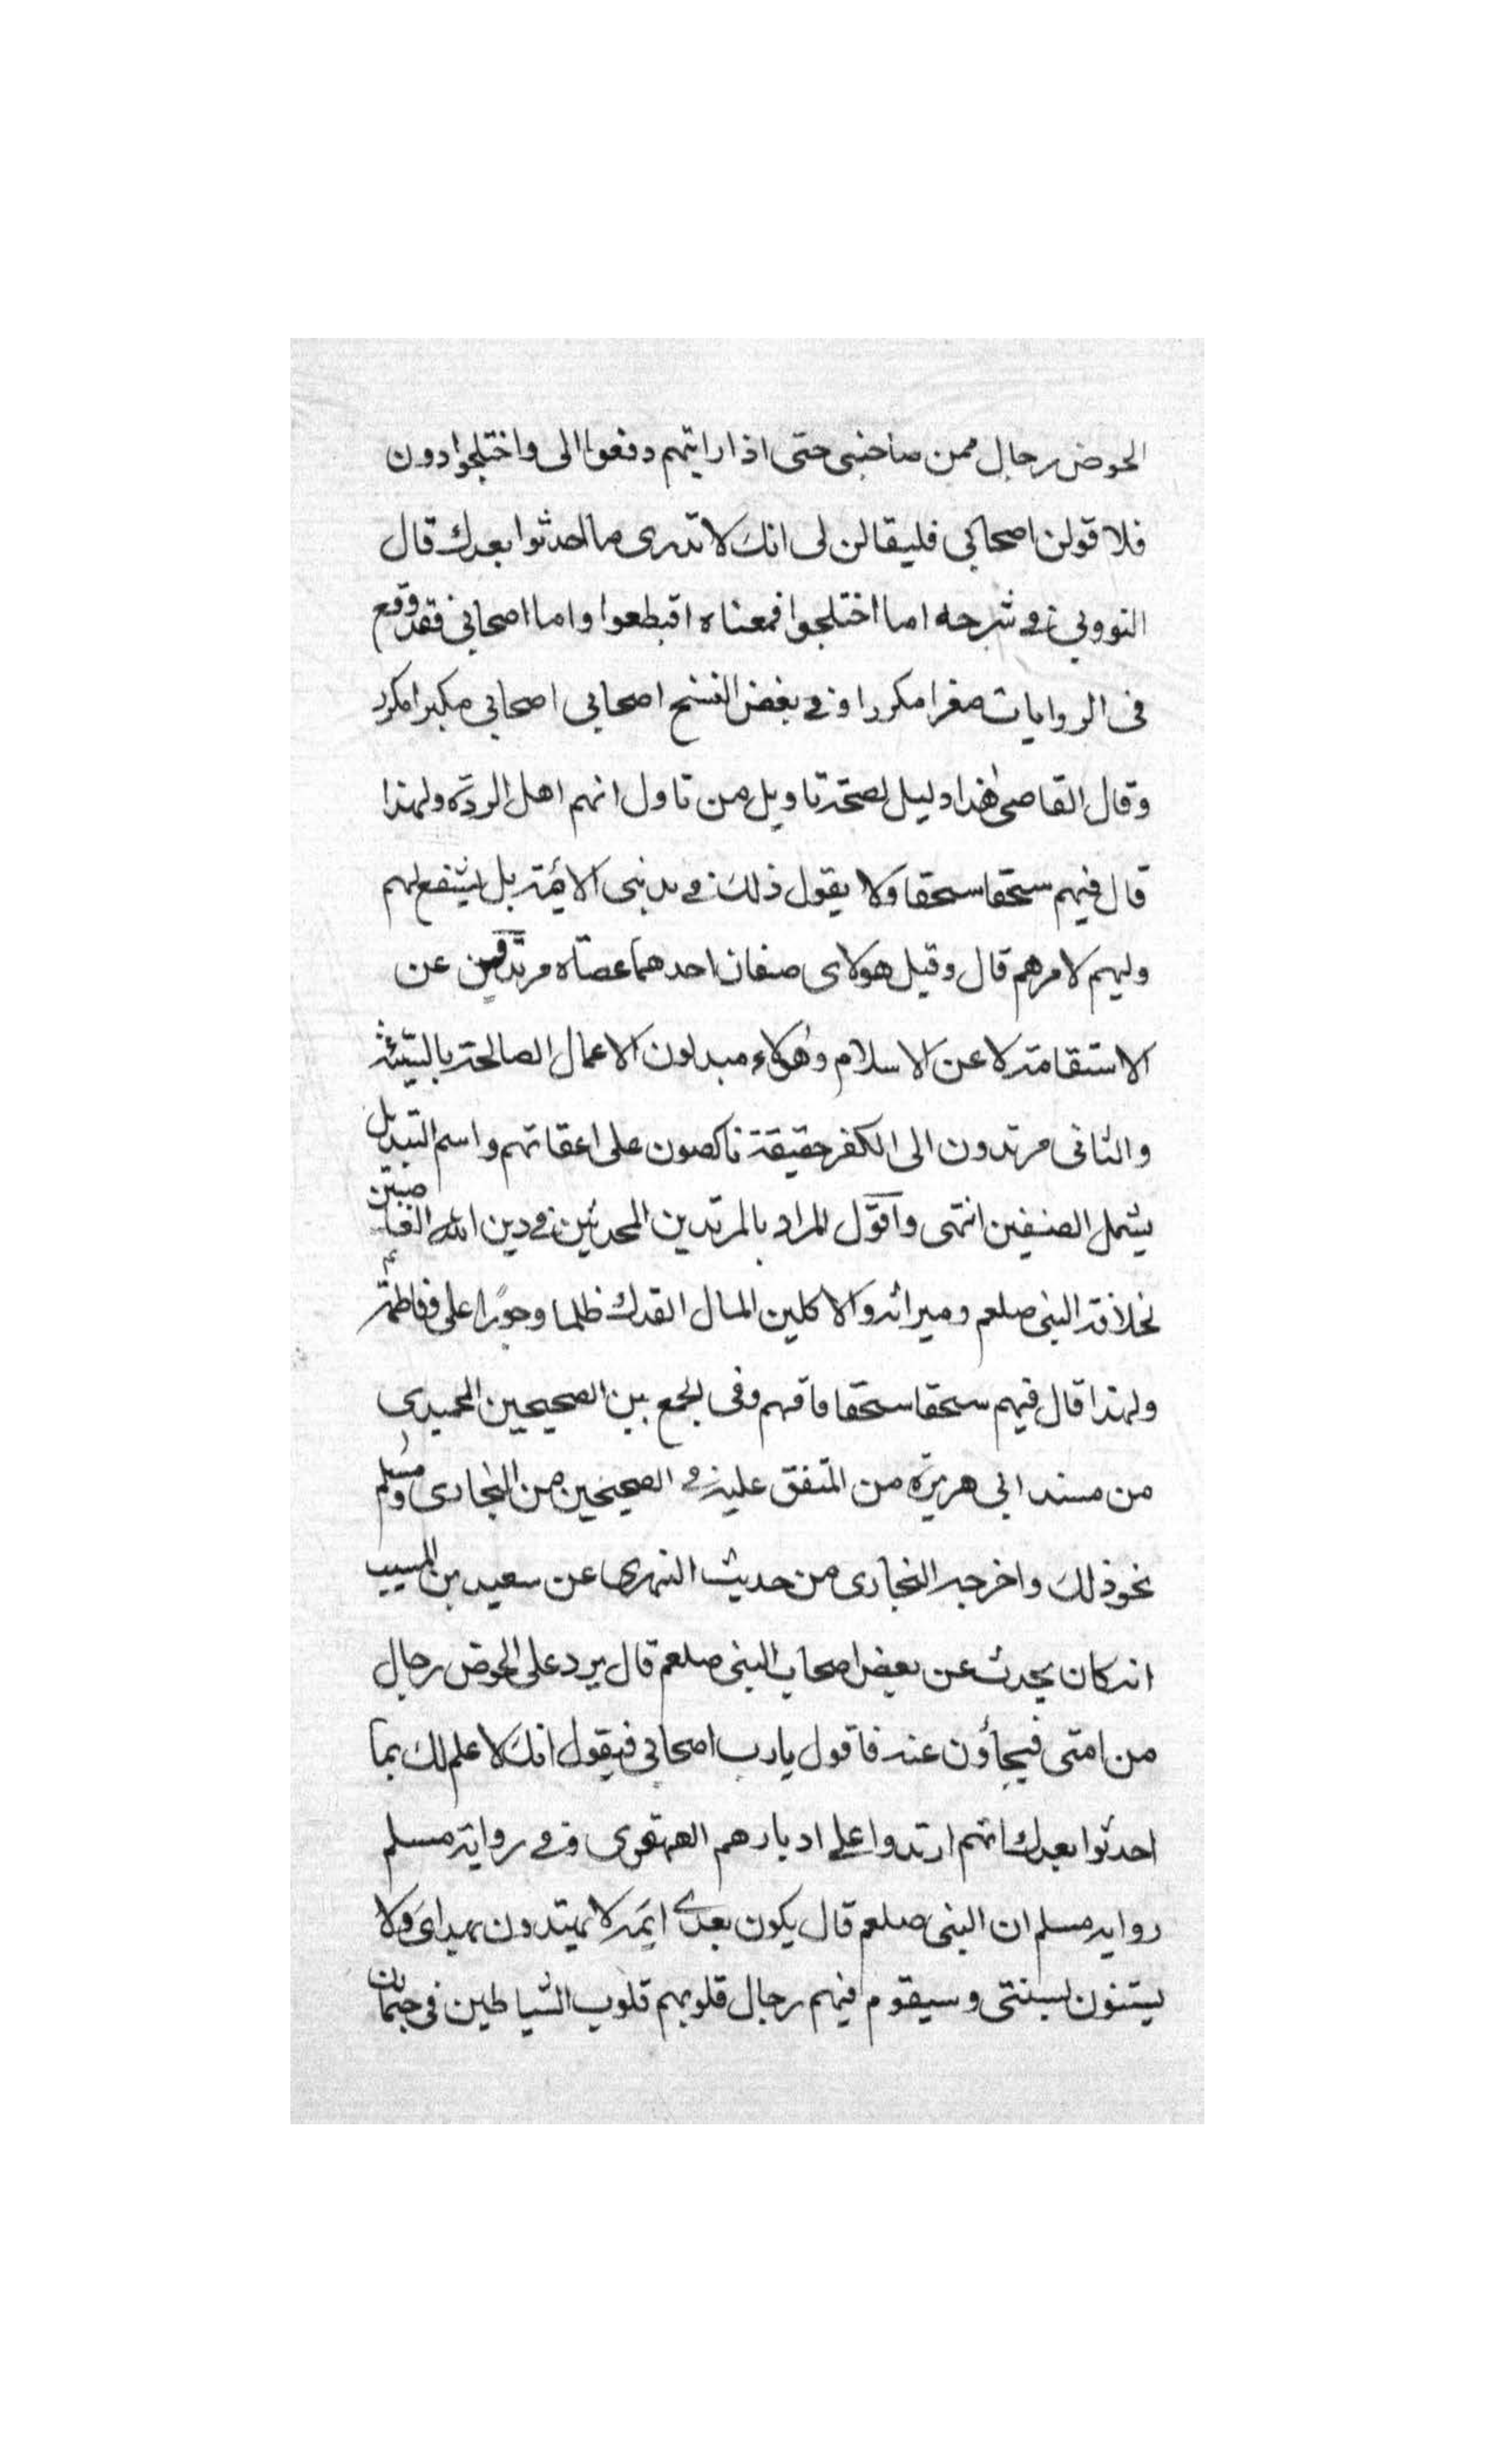 الحوض رجال ممن صاحبنى حتى اذا رايتهم دفعوا الى واختلجوا دون
فلا قولن اصحابى فليقالن لى انك لا تدرى ما احدثوا بعدك قال
النووي فى شرحه اما اختلجوا فمعناه اقتطعوا واما اصحابى فقد وقع
فى الروايات مصغرا مكررا وفى بعض النسخ اصحابى اصحابى مكبرا مكرر
وقال القاضى هذا دليل لصحة تاويل من تاول انهم اهل الردة ولهذا
قال فيهم سحقا سحقا ولا يقول ذلك فى مذنبى الائمة بل يشفع لهم
وليهم لامرهم قال وقيل هولاى صنفان احدهما عصاه مرتدين عن
الاستقامة لا عن الاسلام وهولاء مبدلون الاعمال الصالحة بالسيئة
والثانى مرتدون الى الكفر حقيقة ناكصون على اعقابهم واسم التبديل
يشمل الصنفين انتهى واقول المراد بالمرتدين المحدثين فى دين الله الغاصبين
بخلافة النبى صلعم وميراثه والاكلين المال الفدك ظلما وجورا على فاطمة
ولهذا قال فيهم سحقا سحقا فافهم وفى الجمع بين الصحيحين الحميدى
من مسند ابى هريرة من المتفق عليه فى الصحيحين من البخارى ومسلم
نحو ذلك واخرجه البخارى من حديث الزهرى عن سعيد بن المسيب
انه كان يحدث عن بعض اصحاب النبى صلعم قال يرد على الحوض رجال
من امتى فيجاؤن عنه فاقول يارب اصحابى فيقول انك لا علم لك بما
احدثوا بعدك انهم ارتدوا على ادبارهم القهقرى وفى رواية مسلم
رواية مسلم ان النبى صلعم قال يكون بعدى ايمة لا يهتدون بهداى ولا
يستنون بسنتى وسيقوم فيهم رجال قلوبهم قلوب الشياطين فى جثمان